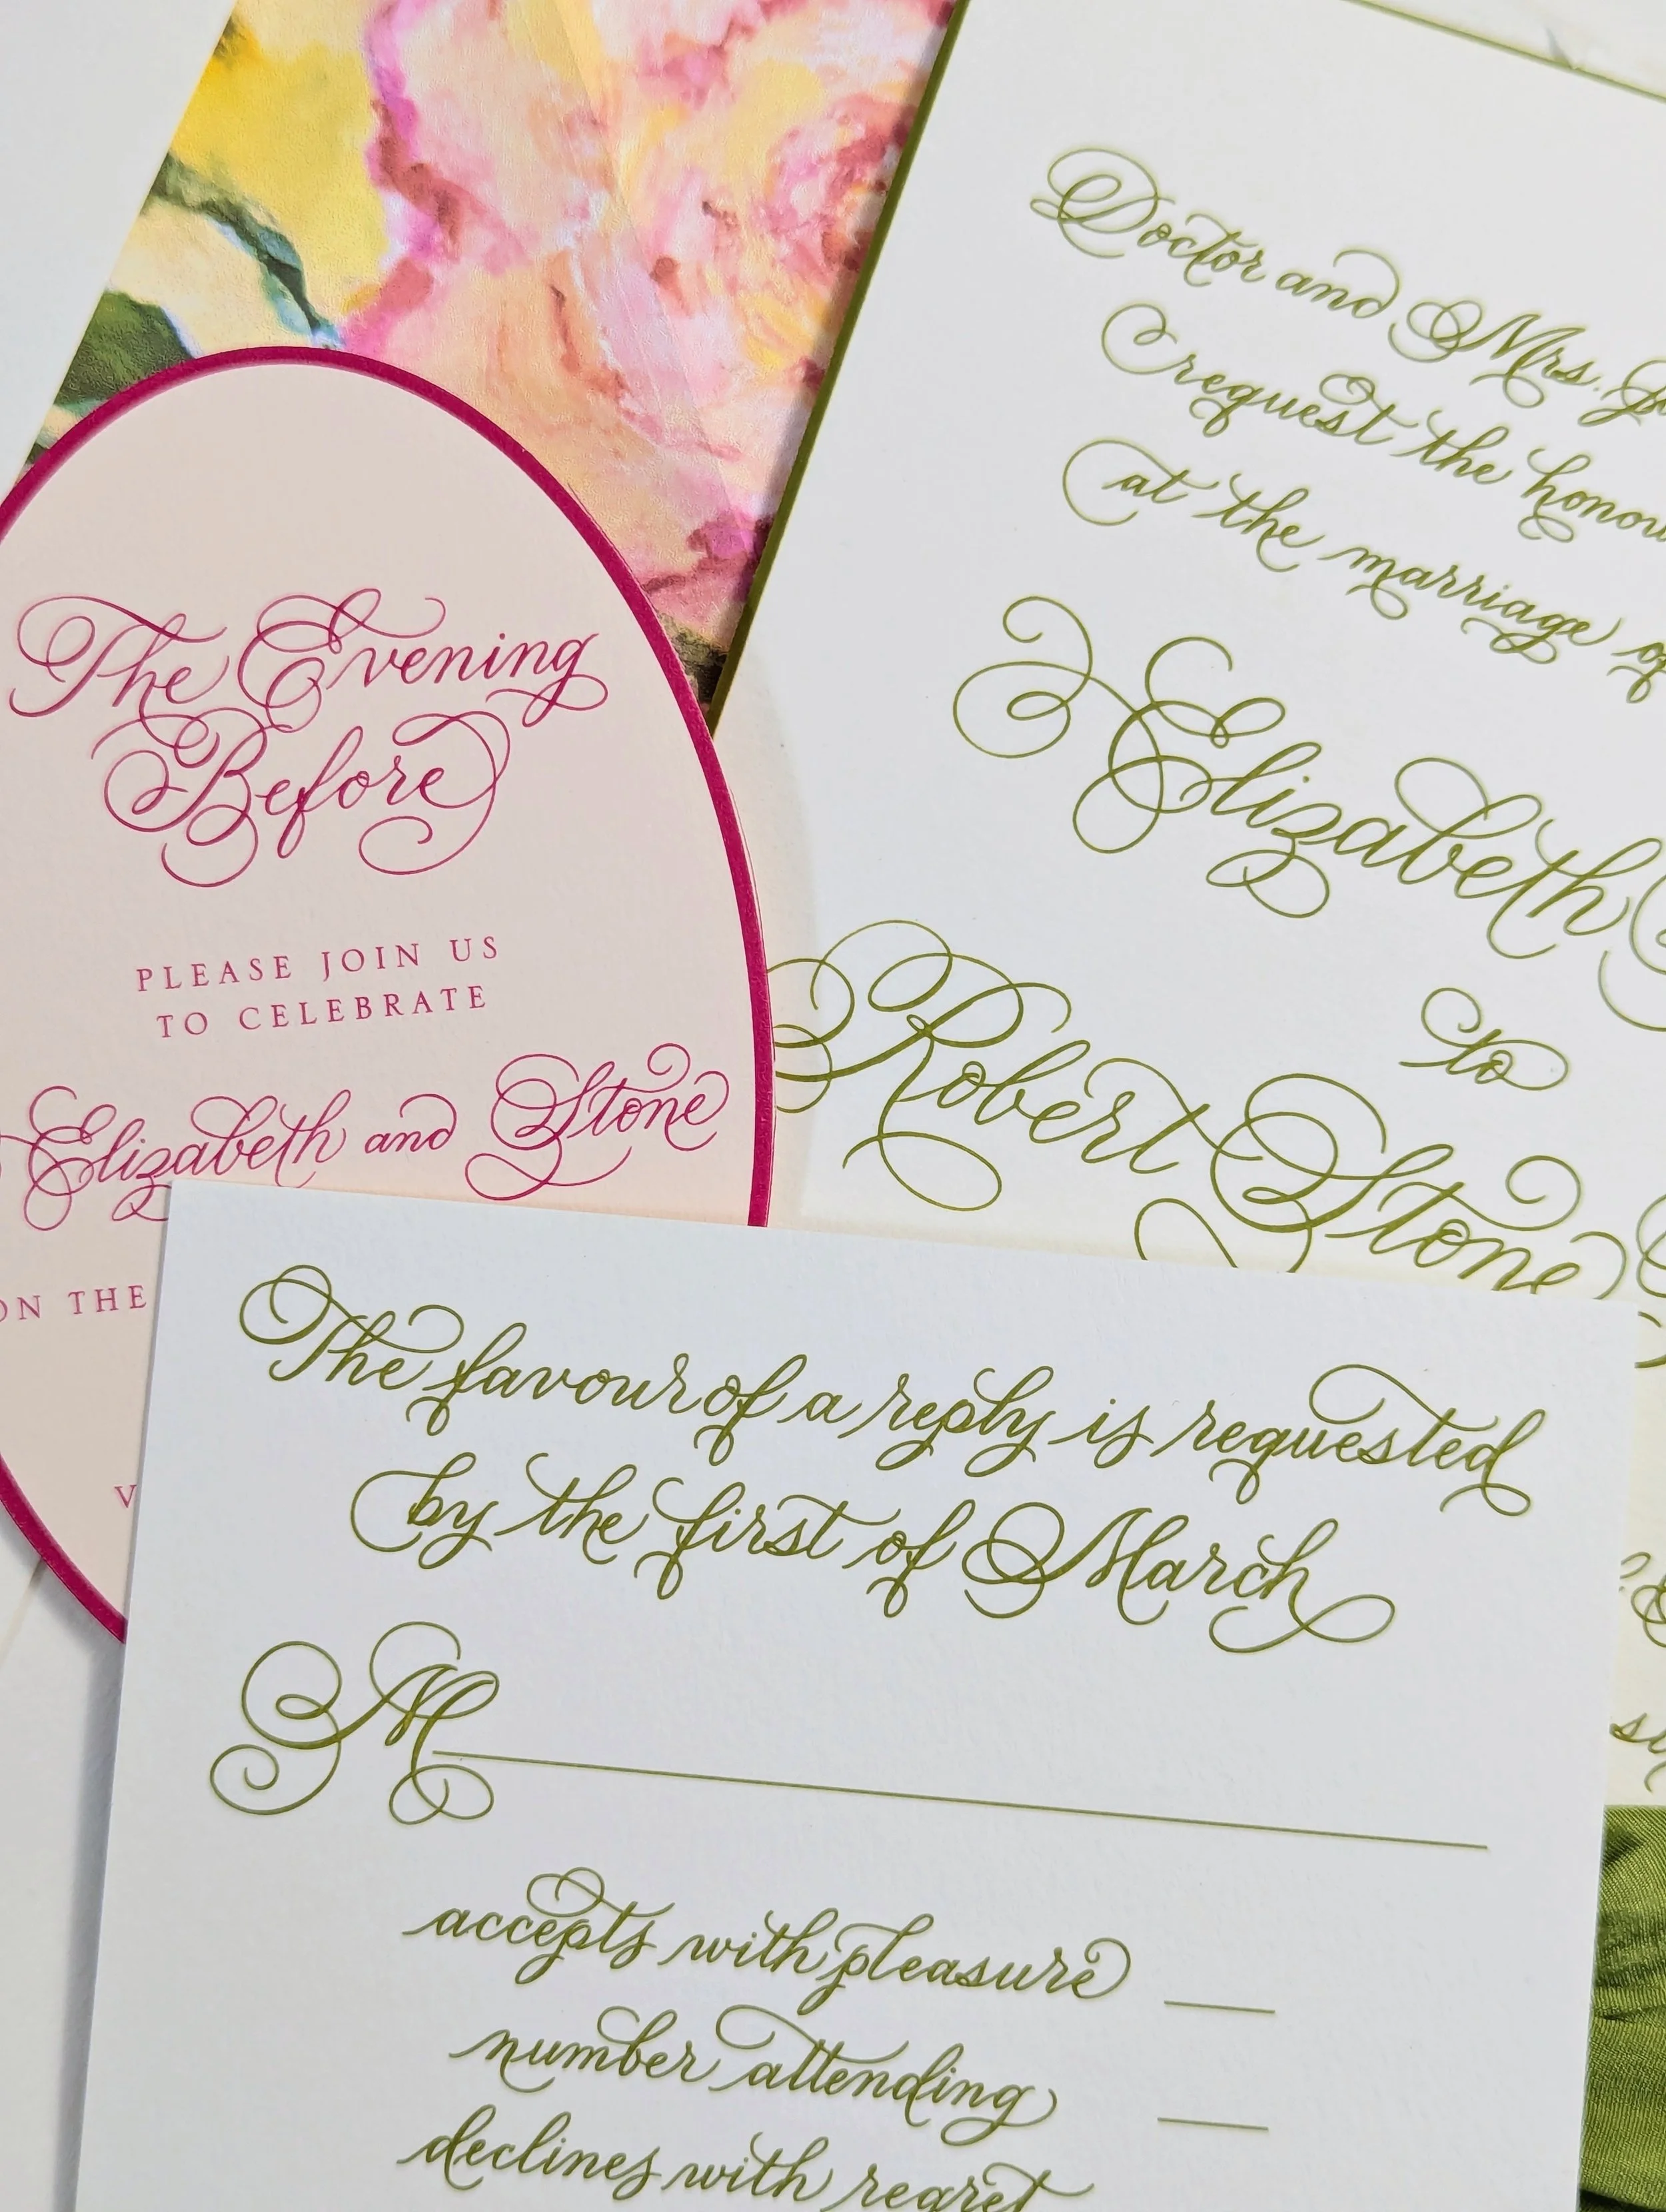 The Evening
Before
PLEASE JOIN US
TO CELEBRATE
Elizabeth and Stone
ON THE
Doctor and Mrs.
request the
at the marriage of
Elizabeth
to
Robert Stone
The favour of a reply is requested
by the first of March
M
accepts with pleasure
number attending
declines with regret